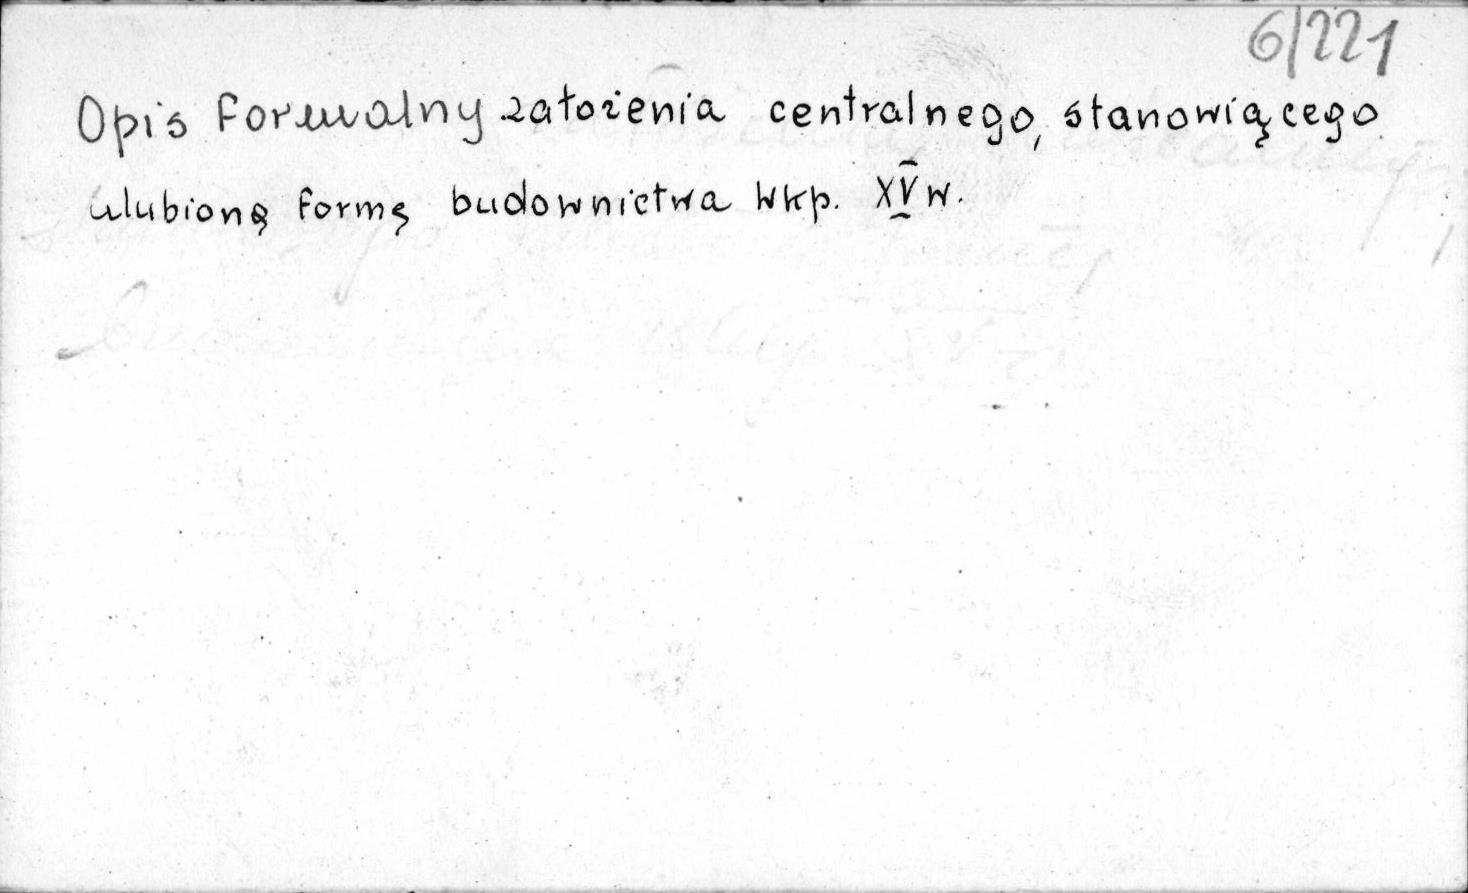 6/221
Opis formalny założenia centralnego, stanowiącego
ulubioną formę budownictwa Wkp. XV w.